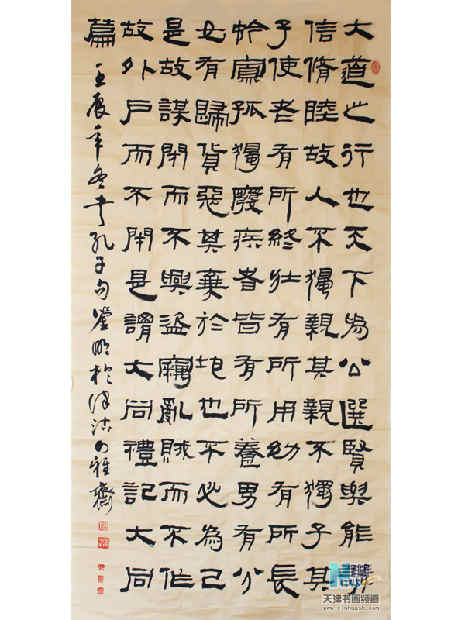 大道之行也天下為公選賢與能
信脩睦故人不獨親其親不獨子其
子使老有所終壯有所用幼有所長
矜寡孤獨廢疾者皆有所養男有分
女有歸貨惡其棄於地也不必為己
是故謀閉而不興盜竊亂賊而不作
故外戶而不閉是謂大同禮記大同
篇 壬辰年冬孔子句於津沽雅齋
天津书画频道